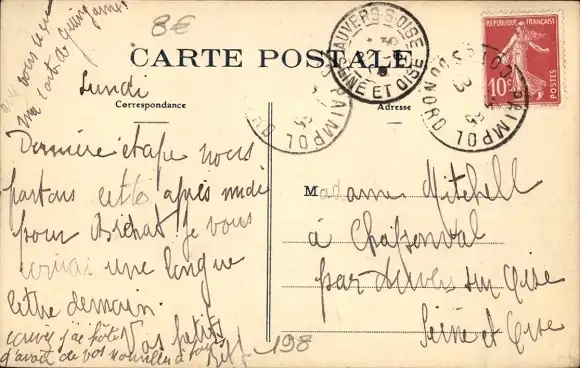 8€
CARTE POSTALE
Lundi
Correspondance
Adresse
RÉPUBLIQUE FRANÇAISE
10c
POSTES
AUVERS-S-OISE
SEINE ET OISE
PAIMPOL
COTES DU NORD
PAIMPOL
Dernière étape nous
partons cette après midi
pour Bréhat! Je vous
écrirai une longue
lettre demain.
écrivez j'ai hâte
d'avoir de vos nouvelles à tous
Vos petits
Madame Mitchell
à Chaponval
par Auvers sur Oise
Seine et Oise
198